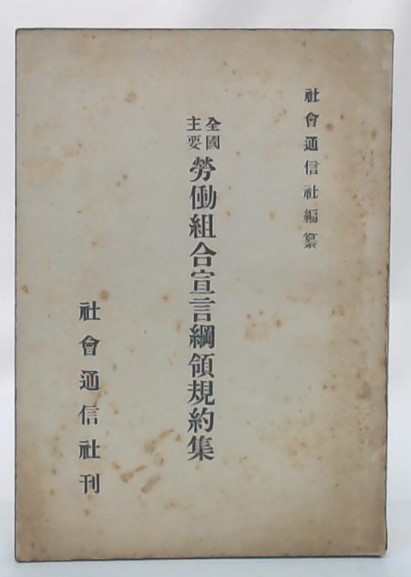 社會通信社編纂
全國主要 勞働組合宣言綱領規約集
社會通信社刊